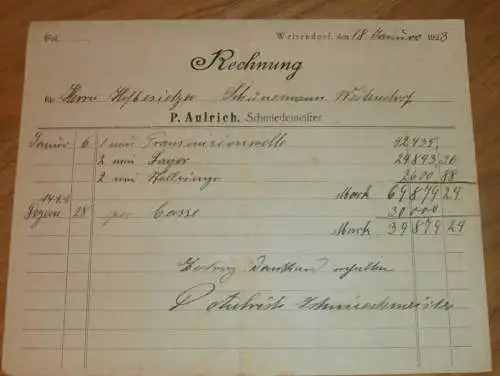 Fol.
Weitendorf, den 18. Januar 1923
Rechnung
für Herrn Hofbesitzer Schünemann Weitendorf
P. Aulrich, Schmiedemeister.
Januar 6 1 neue Transmissionswelle 42435
2 neue Lager 24843 36
2 neue Stellringe 2600 88
Mark 69879 24
28 per Casse 30000
Mark 39879 24
Betrag dankend erhalten
P. Aulrich Schmiedemeister